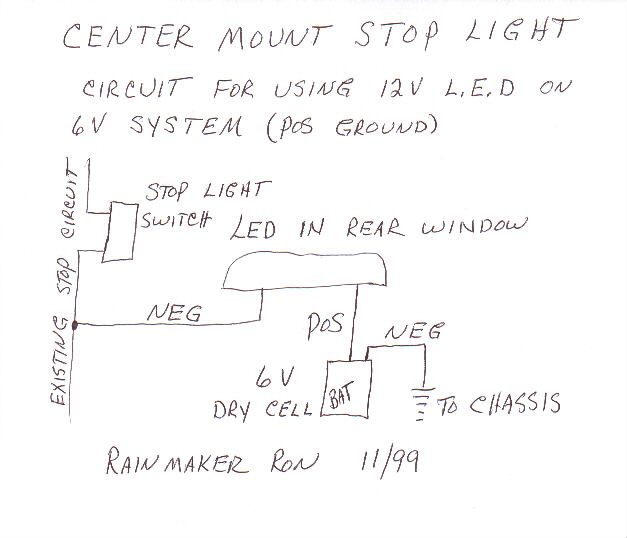 CENTER MOUNT STOP LIGHT
CIRCUIT FOR USING 12V L.E.D ON
6V SYSTEM (POS GROUND)
EXISTING STOP CIRCUIT
STOP LIGHT
SWITCH
LED IN REAR WINDOW
NEG
POS
NEG
6V
DRY CELL
BAT
TO CHASSIS
RAINMAKER RON 11/99